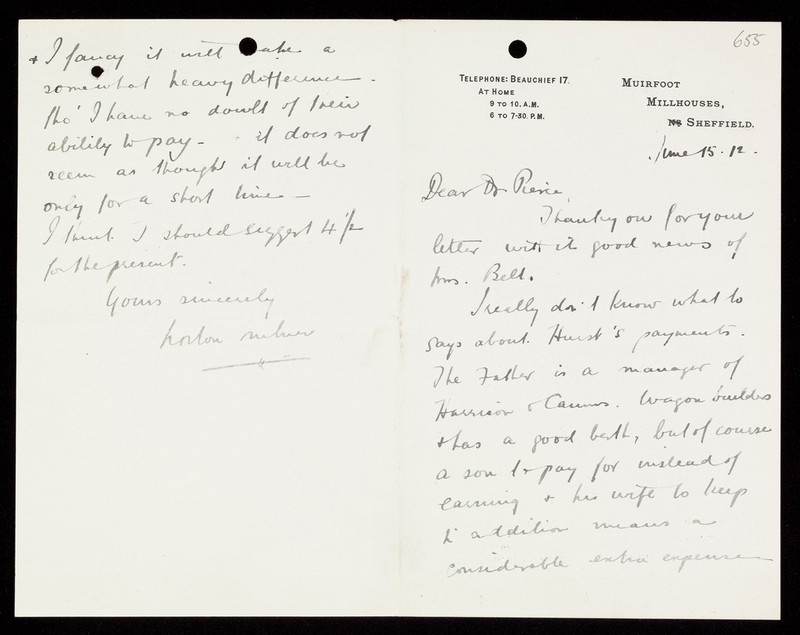 655
TELEPHONE: BEAUCHIEF 17.
AT HOME
9 TO 10. A.M.
6 TO 7-30. P.M.
MUIRFOOT
MILLHOUSES,
SHEFFIELD.
June 15. 12.
Dear Dr Pierce,
Thank you for your
letter with its good news of
Mrs. Bell.
I really don't know what to
say about Hurst's payments.
The Father is a manager of
Harrison & Camms. Wagon builders
& has a good berth, but of course
a son to pay for instead of
earning & his wife to keep
in addition means a
considerable extra expense
& I fancy it will make a
somewhat heavy difference.
tho' I have no doubt of their
ability to pay - it does not
seem as though it will be
only for a short time -
I think I should suggest 4½
for the present.
Yours sincerely
Milner